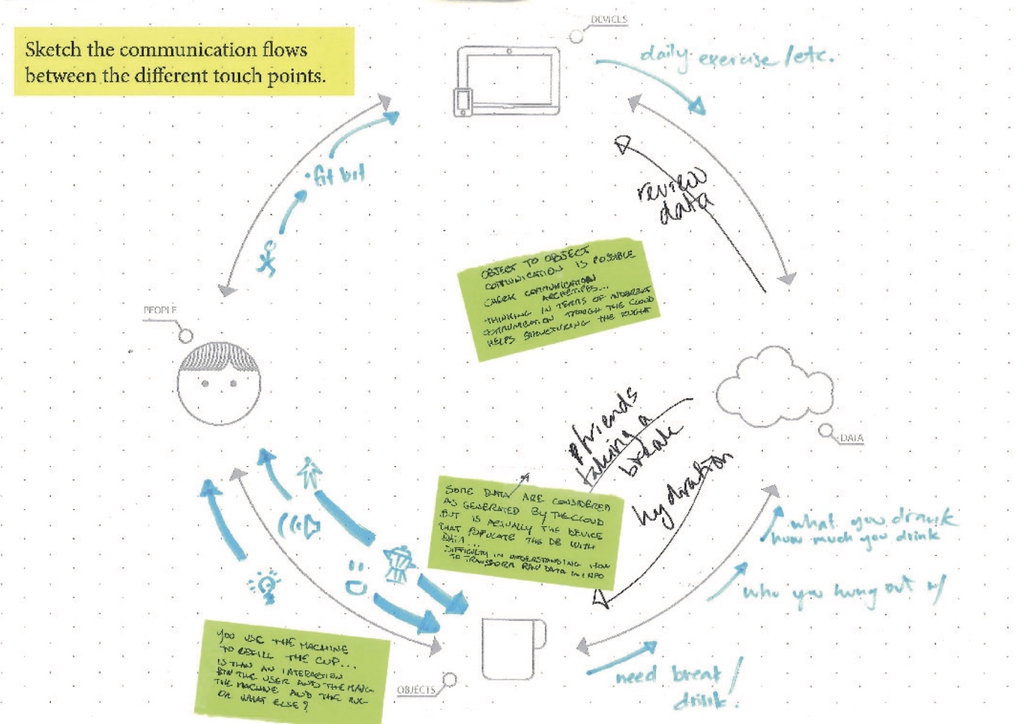 Sketch the communication flows
between the different touch points.
DEVICES
daily exercise/etc.
• fit bit
review
data
PEOPLE
OBJECT TO OBJECT
COMMUNICATION IS POSSIBLE
CHECK COMMUNICATION
ARCHETIPES...
THINKING IN TERMS OF
COMMUNICATION TROUGH THE CLOUD
HELPS STRUCTURING THE
DATA
friends
taking a
break
hydration
SOME DATA ARE CONSIDERED
AS GENERATED BY THE CLOUD
BUT IS ACTUALLY THE DEVICE
THAT POPULATE THE DB WITH
DATA...
DIFFICULTY IN UNDERSTANDING HOW
TO TRANSFORM RAW DATA IN INFO
what you drank
how much you drink
who you hung out w/
need break/
drink!
YOU USE THE MACHINE
TO REFILL THE CUP...
IS THAN AN INTERACTION
BTW THE USER AND THE
THE MACHINE AND THE MUG
OR WHAT ELSE?
OBJECTS